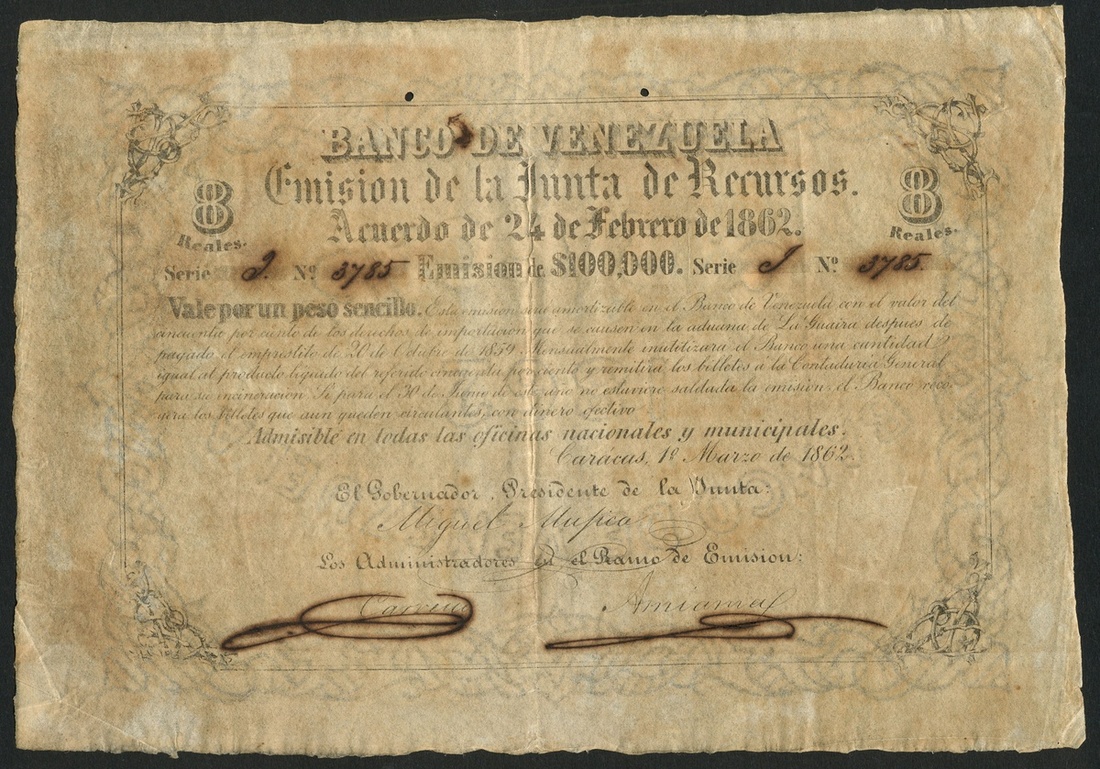 BANCO DE VENEZUELA
Emision de la Junta de Recursos.
8 Reales.
8 Reales.
Acuerdo de 24 de Febrero de 1862.
Serie J. Nº 3785 Emision de $100,000. Serie J Nº 3785.
Vale por un peso sencillo. Esta emision será amortizable en el Banco de Venezuela con el valor del
cincuenta por ciento de los derechos de importacion que se causen en la aduana de La Guaira despues de
pagado el emprestito de 20 de Octubre de 1859. Mensualmente inutilizará el Banco una cantidad
igual al producto liquido del referido cincuenta por ciento y remitirá los billetes á la Contaduria General
para su incineracion. Si para el 30 de Junio de este año no estuviere saldada la emision, el Banco reco-
gerá los billetes que aun queden circulantes, con dinero efectivo
Admisible en todas las oficinas nacionales y municipales.
Caracas, 1º Marzo de 1862.
El Gobernador, Presidente de la Junta:
Miguel Mujica
Los Administradores en el Ramo de Emision: